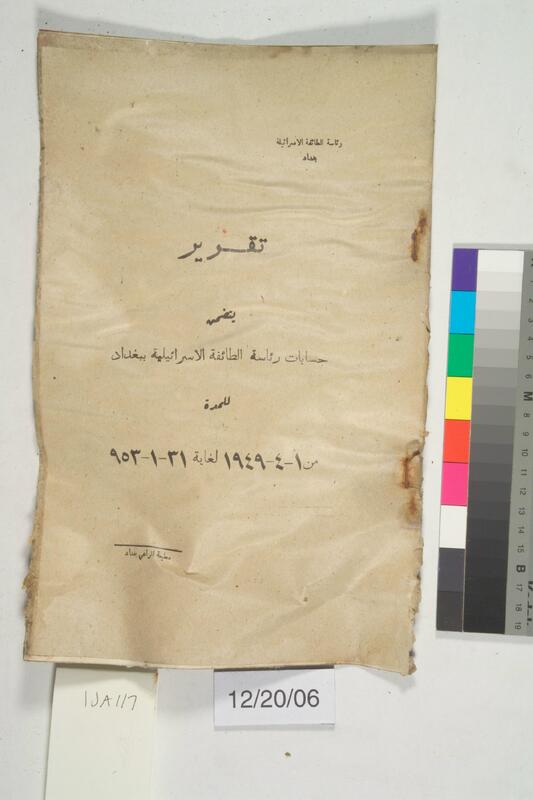 رئاسة الطائفة الاسرائيلية
بغداد
تقـــرير
يتضمن
حسابات رئاسة الطائفة الاسرائيلية ببغداد
للمدة
من ١-٤-١٩٤٩ لغاية ٣١-١-٩٥٣
مطبعة الراعي بغداد
IJA117
12/20/06
M
8
9
10
11
12
13
14
15
B
17
18
19